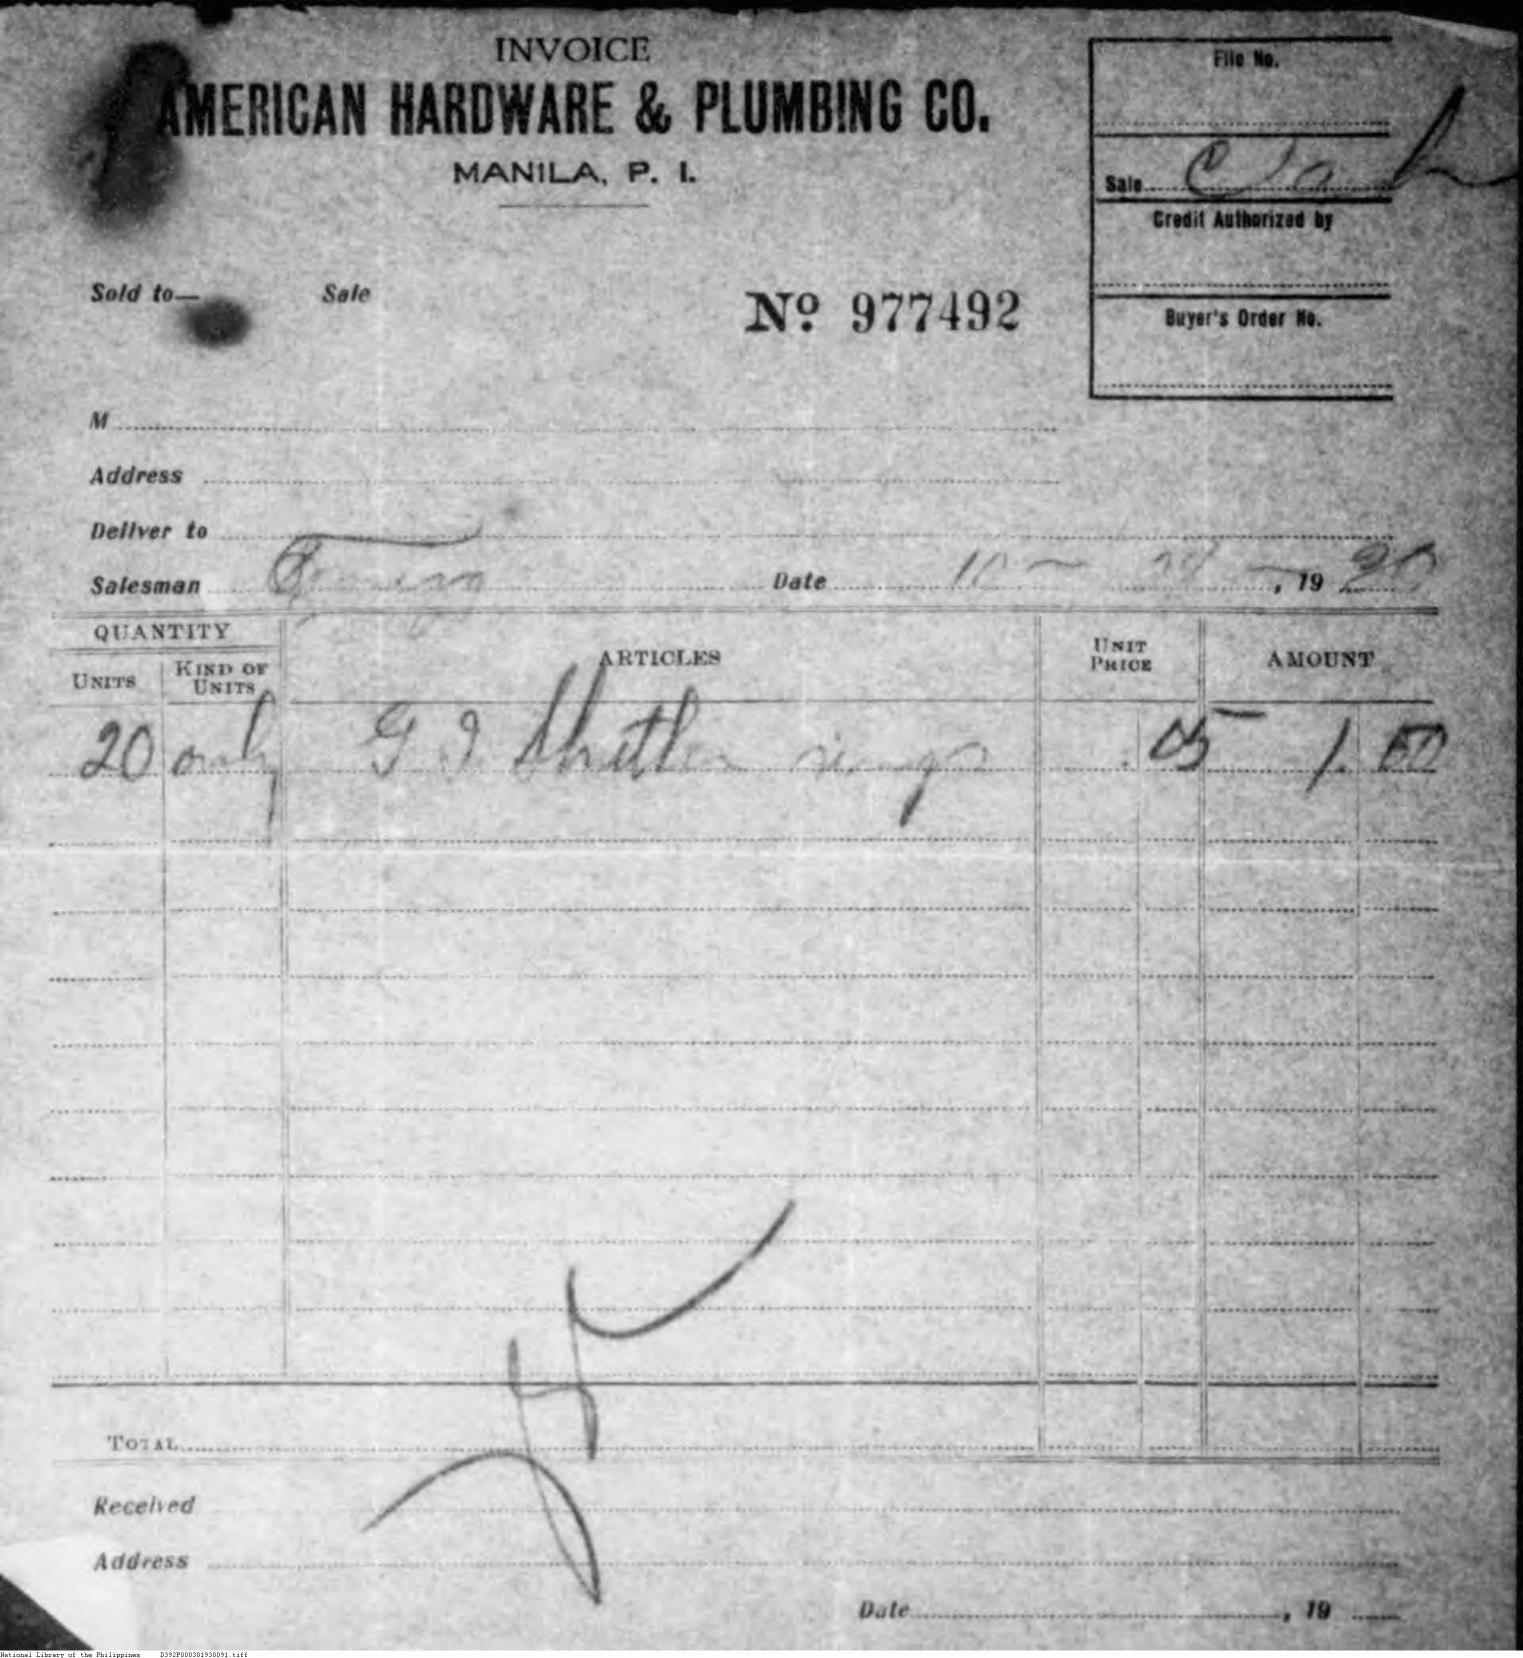 INVOICE
AMERICAN HARDWARE & PLUMBING CO.
MANILA, P. I.
File No.
Sale Cash
Credit Authorized by
Buyer's Order No.
Sold to— Sale
No 977492
M
Address
Deliver to
Salesman Date 10 - 24 - , 19 20
QUANTITY
UNITS KIND OF UNITS ARTICLES UNIT PRICE AMOUNT
20 only G I rings .05 1.00
TOTAL
Received
Address
Date , 19
National Library of the Philippines D392P000301930091.tiff